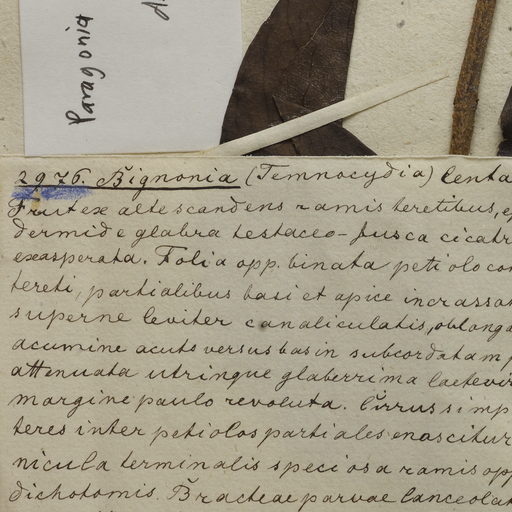 Paragonia
2976. Bignonia (Temnocydia) Centa
Frutex alte scandens ramis teretibus, e
dermide glabra testaceo-fusca cicatr
exasperata. Folia opp. binata petiolo co
tereti, partialibus basi et apice incrassa
superne leviter canaliculatis, oblonga
acumine acuto versus basin subcordatam
attenuata utrinque glaberrima laetevir
margine paulo revoluta. Cirrus simp
teres inter petiolos partiales enascitur
nicula terminalis speciosa ramis opp
dichotomis. Bracteae parvae lanceolat